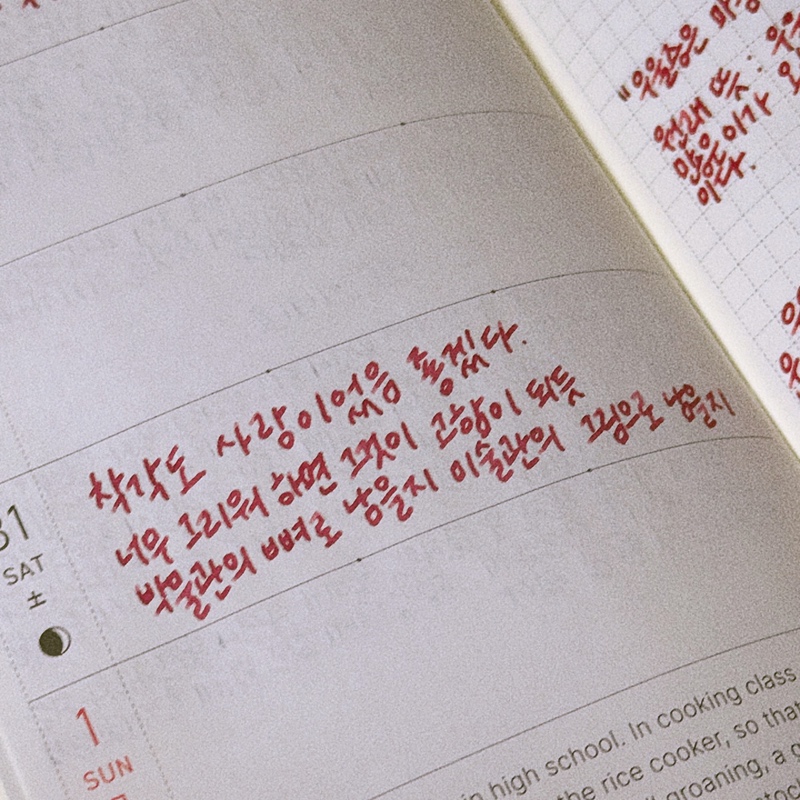 착각도 사랑이었음 좋겠다.
너무 그리워 하면 그것이 관함이 되듯
박물관의 뼈로 남을지 미술관의 그림으로 남을지
31
SAT
土
1
SUN
in high school. In cooking class
the rice cooker, so that
groaning, a
"우울은 마
원래 뜻:
많은 이가 오
이다.